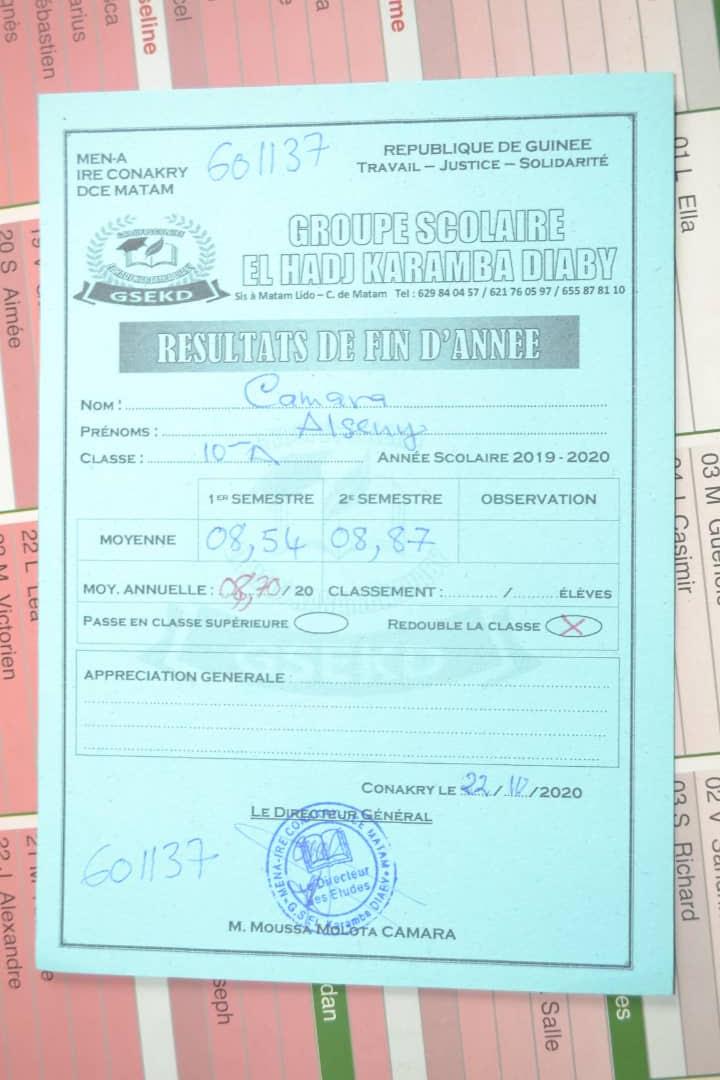 MEN-A
IRE CONAKRY
DCE MATAM
601137
REPUBLIQUE DE GUINEE
TRAVAIL – JUSTICE – SOLIDARITÉ
GSEKD
GROUPE SCOLAIRE
EL HADJ KARAMBA DIABY
Sis à Matam Lido – C. de Matam Tel : 629 84 04 57 / 621 76 05 97 / 655 87 81 10
RESULTATS DE FIN D'ANNEE
NOM : Camara
PRÉNOMS : Alseny
CLASSE : 10 A ANNÉE SCOLAIRE 2019 - 2020
1ER SEMESTRE 2E SEMESTRE OBSERVATION
MOYENNE 08,54 08,87
MOY. ANNUELLE : 08,70 / 20 CLASSEMENT : ........... / .......... ÉLÈVES
PASSE EN CLASSE SUPÉRIEURE REDOUBLE LA CLASSE X
GSEKD
APPRECIATION GENERALE :
CONAKRY LE 22 / 10 /2020
LE DIRECTEUR GÉNÉRAL
601137
Le Directeur
des Etudes
M. MOUSSA MOLOTA CAMARA
seline
Sébastien
Marius
cel
me
01 L Ella
20 S Aimée
03 M
04 J Casimir
22 L Léa
23 M Victorien
02 V
03 S Richard
22 J Alexandre
seph
dan
Salle
es